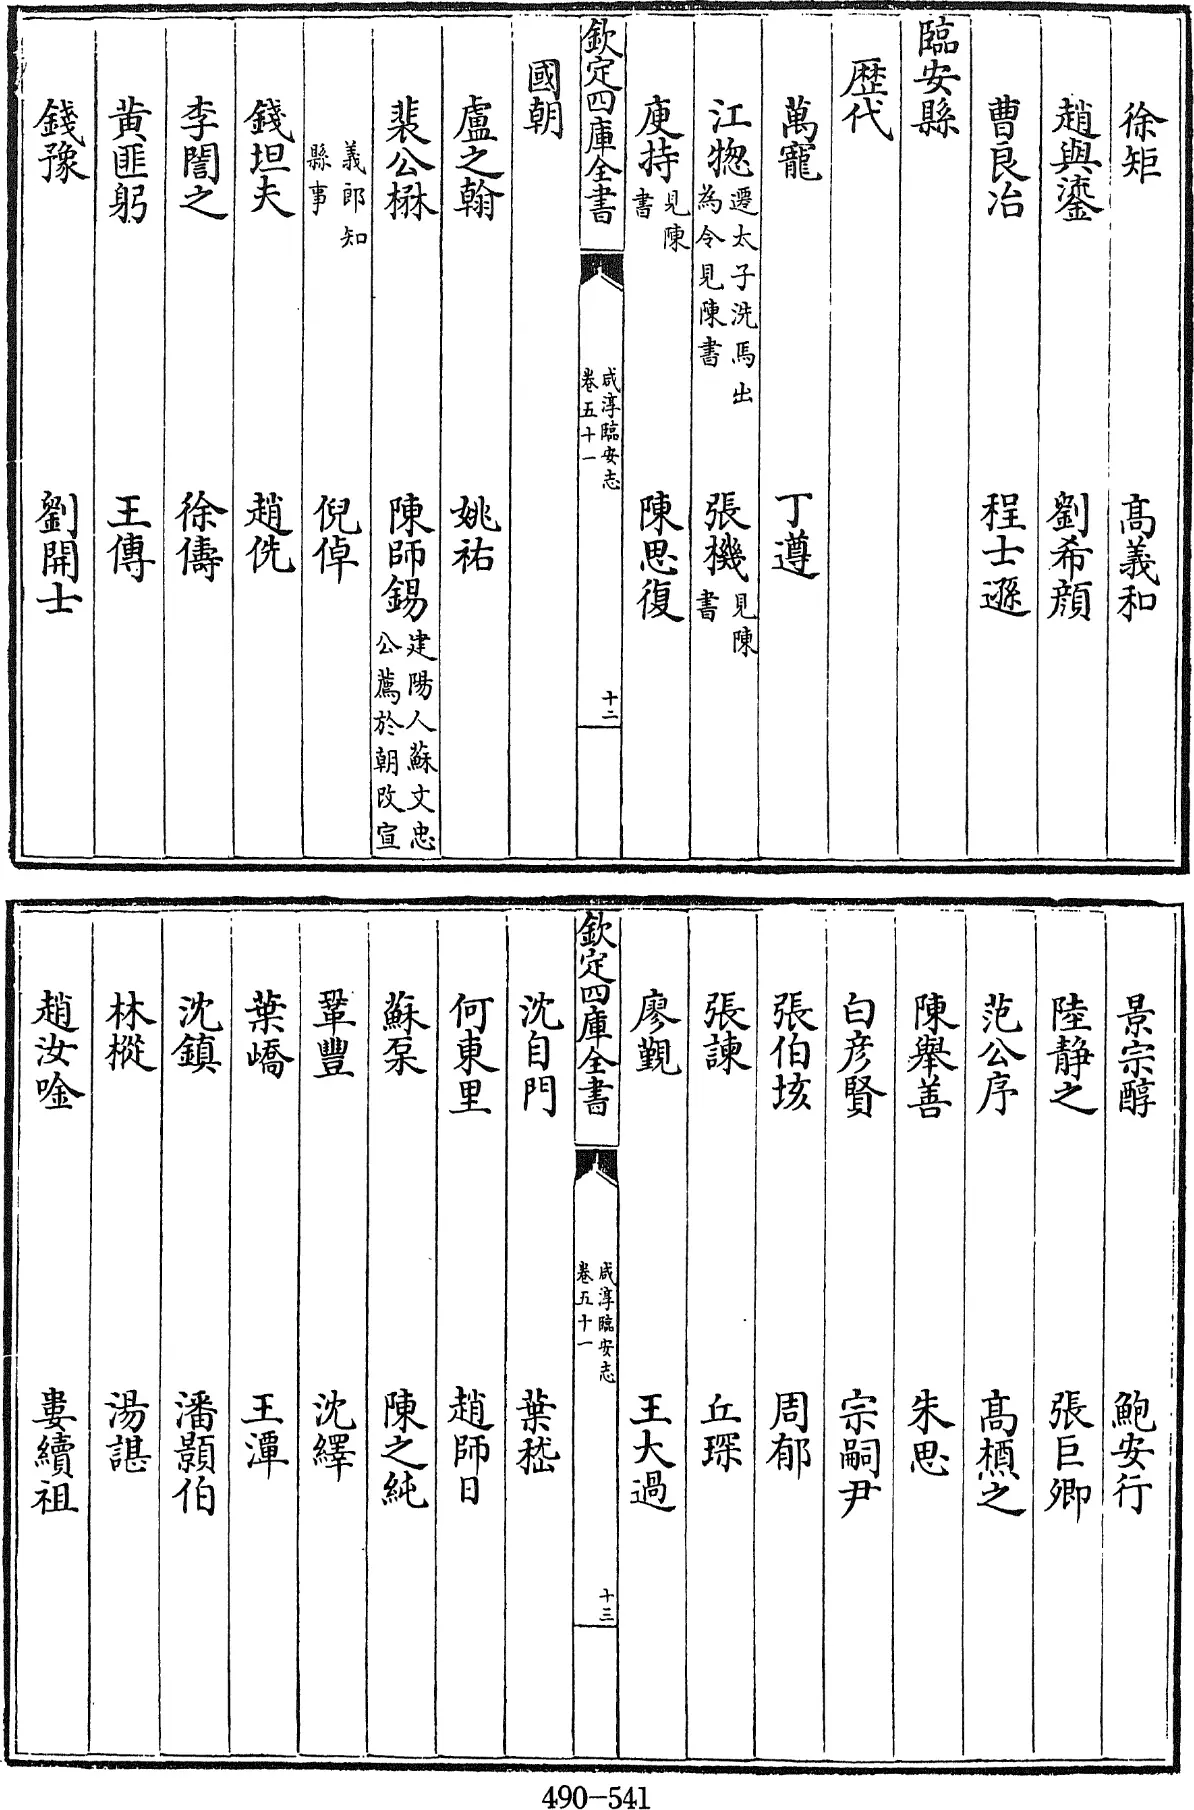 徐矩 高義和
趙與𨫼 劉希顔
曹良冶 程士遜
臨安縣
歴代
萬寵 丁遵
江揔遷太子洗馬出為令見陳書 張機見陳書
庾持見陳書 陳思復
欽定四庫全書
咸淳臨安志
卷五十一
十二
國朝
盧之翰 姚祐
裴公楙 陳師錫建陽人蘇文忠公薦於朝改宣
義郎知縣事 倪倬
錢坦夫 趙侁
李誾之 徐儔
黄匪躬 王傳
錢豫 劉開士
景宗醇 鮑安行
陸静之 張巨卿
范公序 髙槱之
陳舉善 朱思
白彦賢 宗嗣尹
張伯垓 周郁
張諫 丘琛
廖覲 王大過
欽定四庫全書
咸淳臨安志
卷五十一
十三
沈自門 葉嵇
何東里 趙師日
蘇泵 陳之純
鞏豐 沈繹
葉嶠 王潭
沈鎮 潘顥伯
林樅 湯諶
趙汝唫 婁續祖
490-541